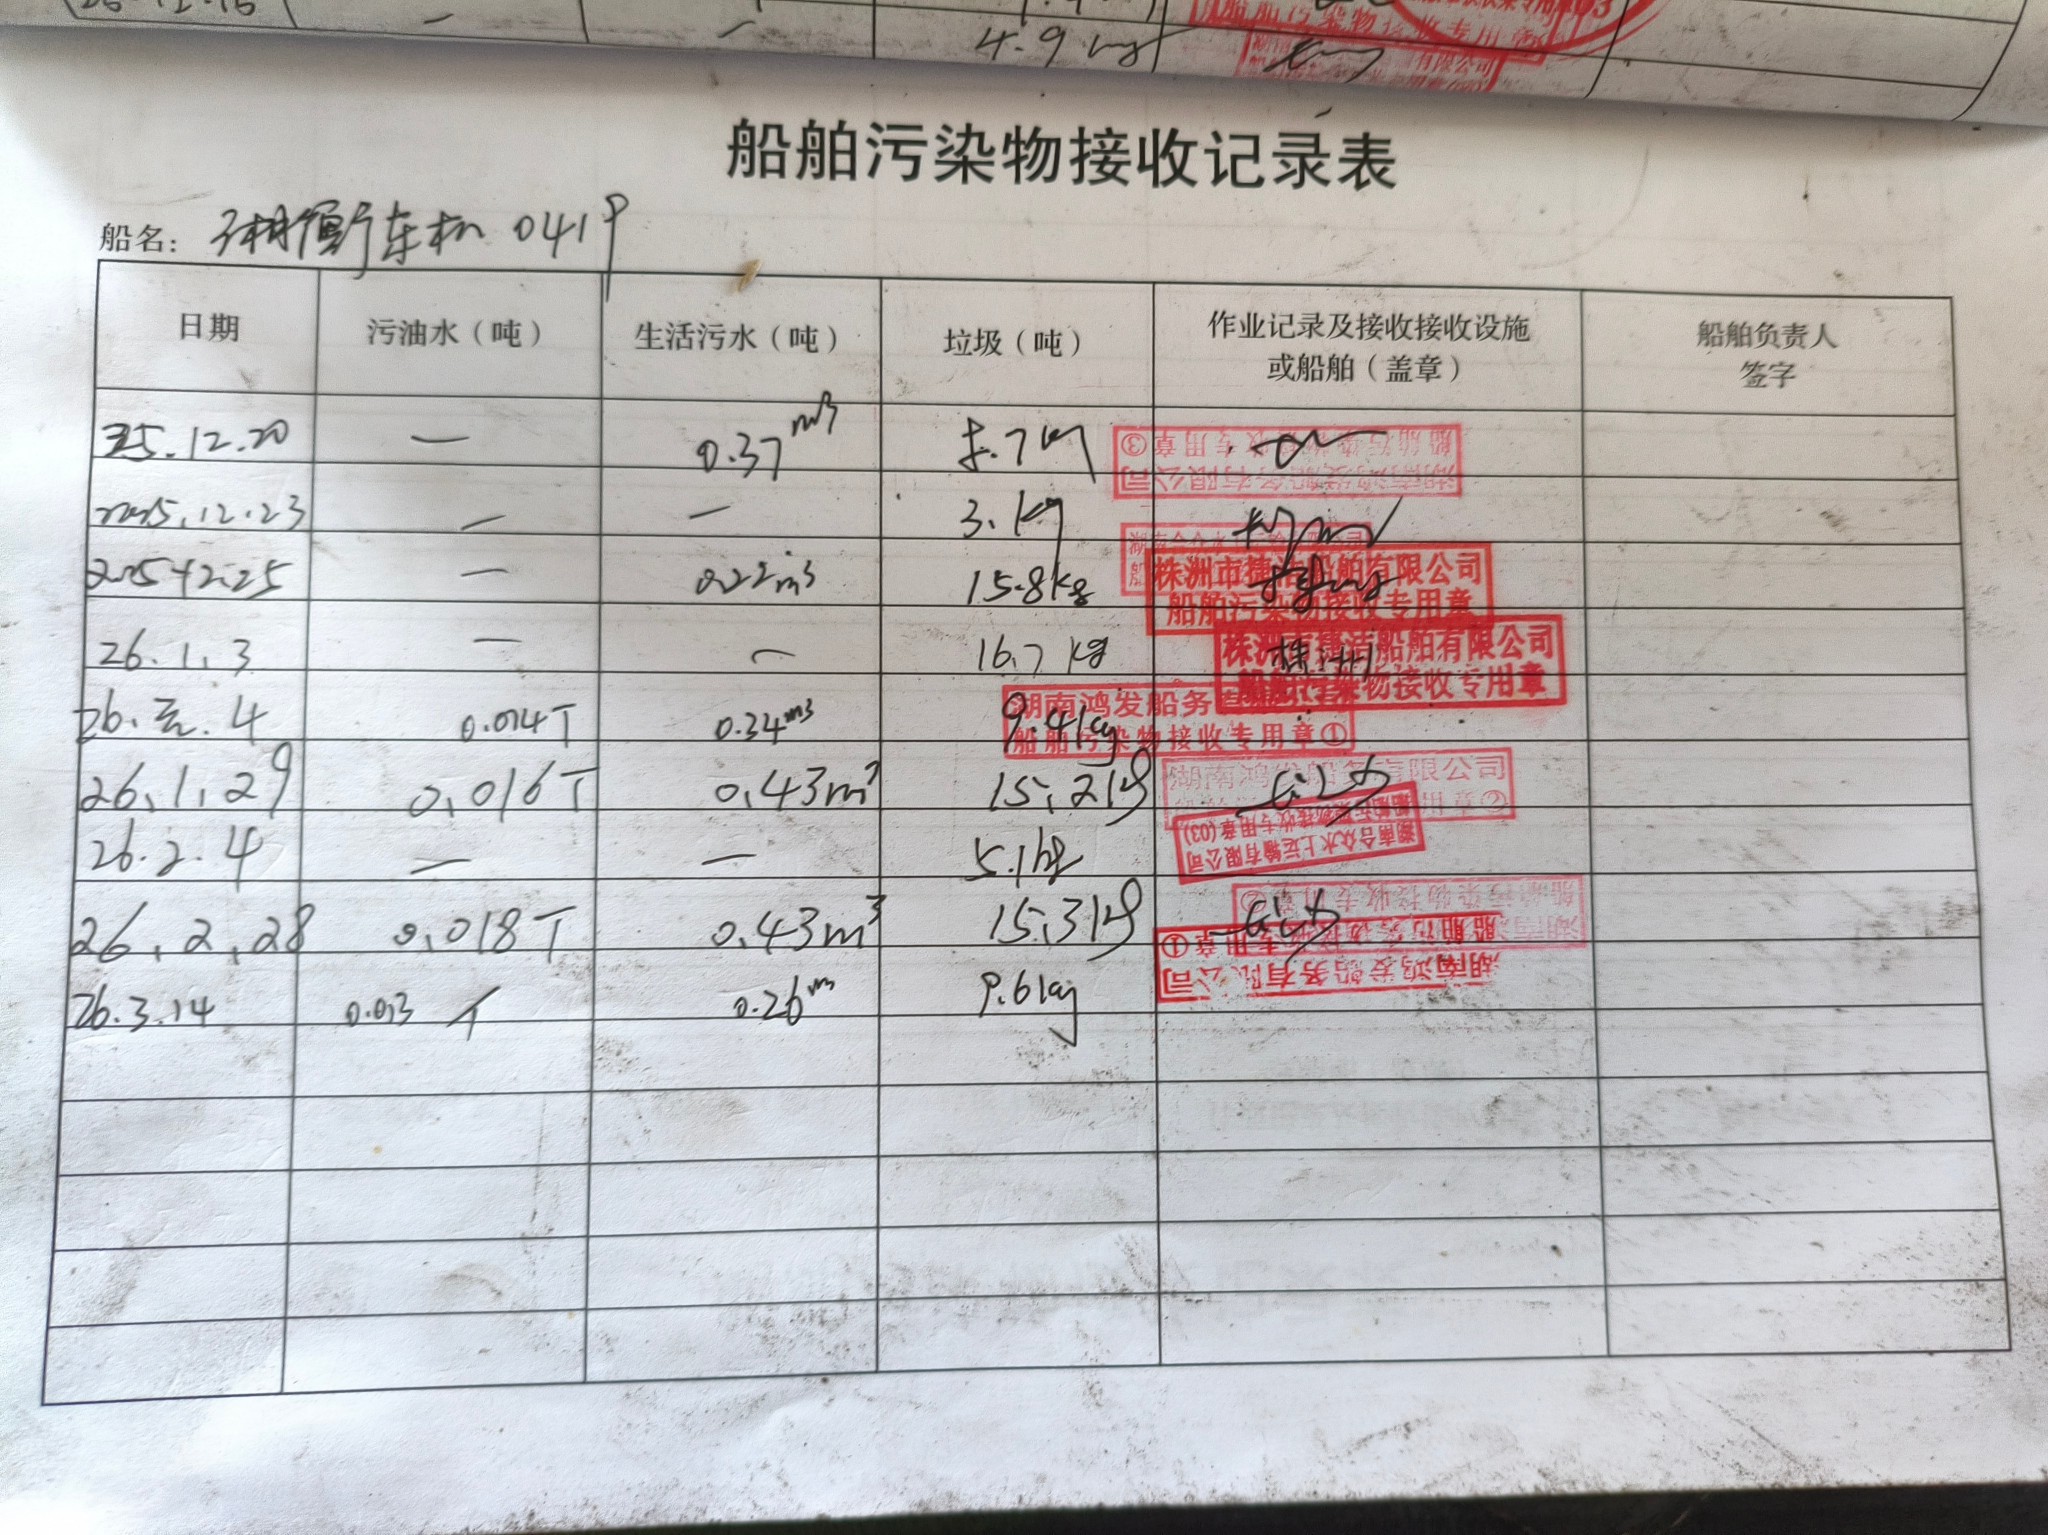 4.9 kg
船舶污染物接收记录表
船名： 湘衡东机 0419
日期 污油水（吨） 生活污水（吨） 垃圾（吨） 作业记录及接收接收设施或船舶（盖章） 船舶负责人签字
25.12.20 — 0.37 m³ 5.7 kg
2025.12.23 — — 3. kg
2025.12.25 — 0.22 m³ 15.8 kg 株洲市捷洁船舶有限公司 船舶污染物接收专用章
26.1.3 — — 16.7 kg 株洲市捷洁船舶有限公司 船舶污染物接收专用章
26. .4 0.014T 0.34 m³ 9.4 kg 湖南鸿发船务 船舶污染物接收专用章①
26.1.29 0.016T 0.43m³ 15.2 kg 湖南鸿发船务有限公司
26.2.4 — — 5.1 kg 湖南合众水上运输有限公司 船舶污染物接收专用章(03)
26.2.28 0.018T 0.43m³ 15.3 kg
26.3.14 0.013 T 0.26 m³ 9.6 kg 湖南鸿发船务有限公司 船舶污染物接收专用章①